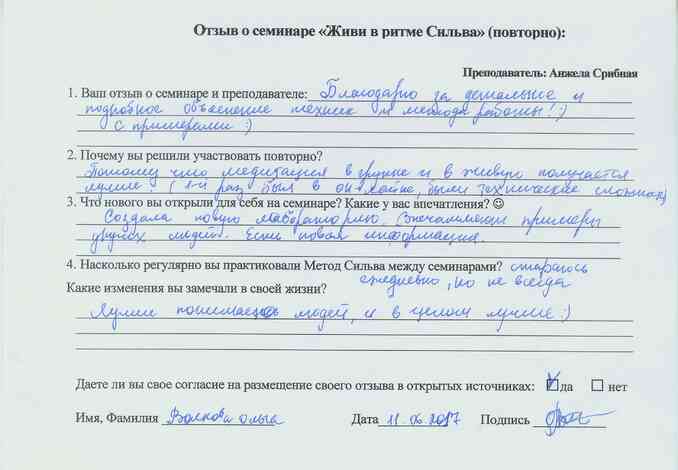 Отзыв о семинаре «Живи в ритме Сильва» (повторно):
Преподаватель: Анжела Срибная
1. Ваш отзыв о семинаре и преподавателе: Благодарю за детальные и
подробное объяснение техник и метода работы! :)
с примерами :)
2. Почему вы решили участвовать повторно?
Потому что медитация в группе и в живую получается
лучше (1-й раз был в он-лайне, были технические сложнос)
3. Что нового вы открыли для себя на семинаре? Какие у вас впечатления? ☺
Создала новую лабораторию. Впечатлили примеры
других людей. Есть новая информация.
4. Насколько регулярно вы практиковали Метод Сильва между семинарами? стараюсь
ежедневно, но не всегда
Какие изменения вы замечали в своей жизни?
Лучше понимаю людей, и в целом лучше :)
Даете ли вы свое согласие на размещение своего отзыва в открытых источниках: да нет
Имя, Фамилия Волкова Ольга Дата 11.06.2017 Подпись